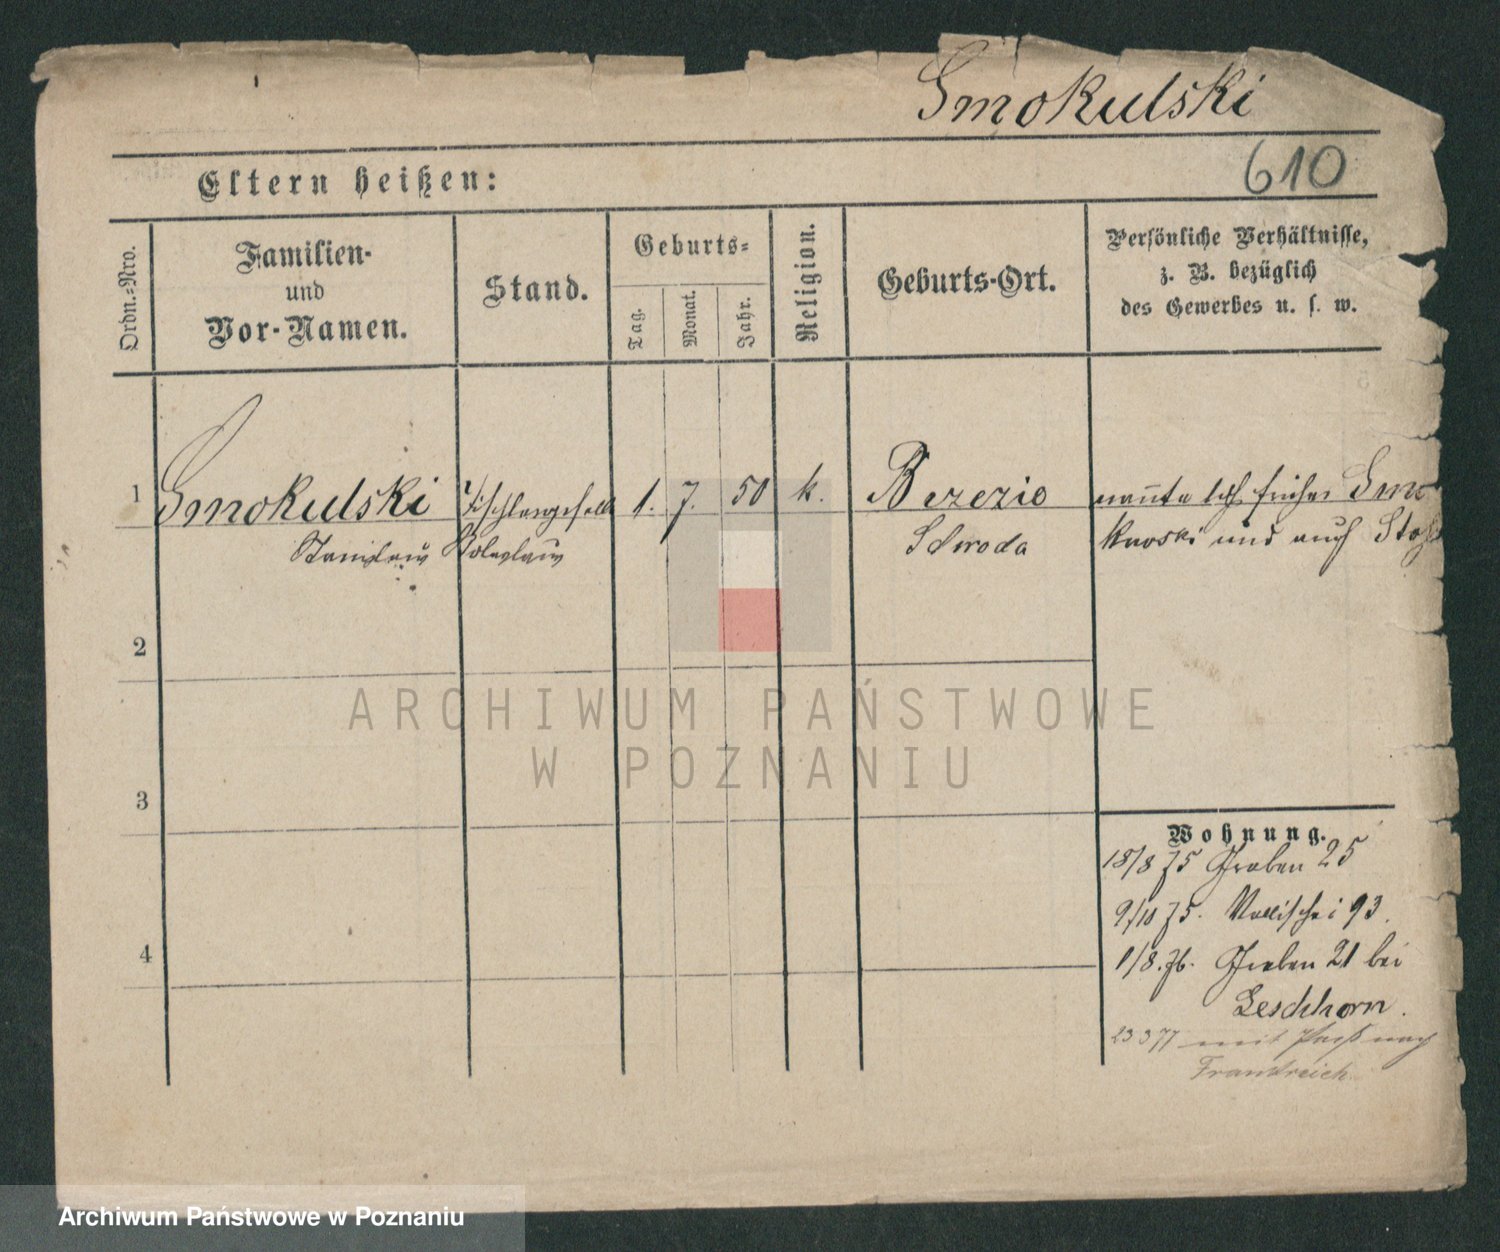 Smokulski
610
Eltern heißen:
Ordn.-Nro.
Familien-
und
Vor-Namen.
Stand.
Geburts-
Tag.
Monat.
Jahr.
Religion.
Geburts-Ort.
Persönliche Verhältnisse,
z. B. bezüglich
des Gewerbes u. s. w.
1
Smokulski
Stanislaw Boleslaw
Tischlergesell
1. 7. 50
k.
Brzezie
Schroda
nannte sich früher Smo
kowski und auch
2
3
4
Wohnung.
18/8 75 Graben 25
9/10 75. Wallischei 93.
1/8. 76. Graben 21 bei
Leschhorn.
23 3 77 mit Paß nach
Frankreich
ARCHIWUM PAŃSTWOWE
W POZNANIU
Archiwum Państwowe w Poznaniu